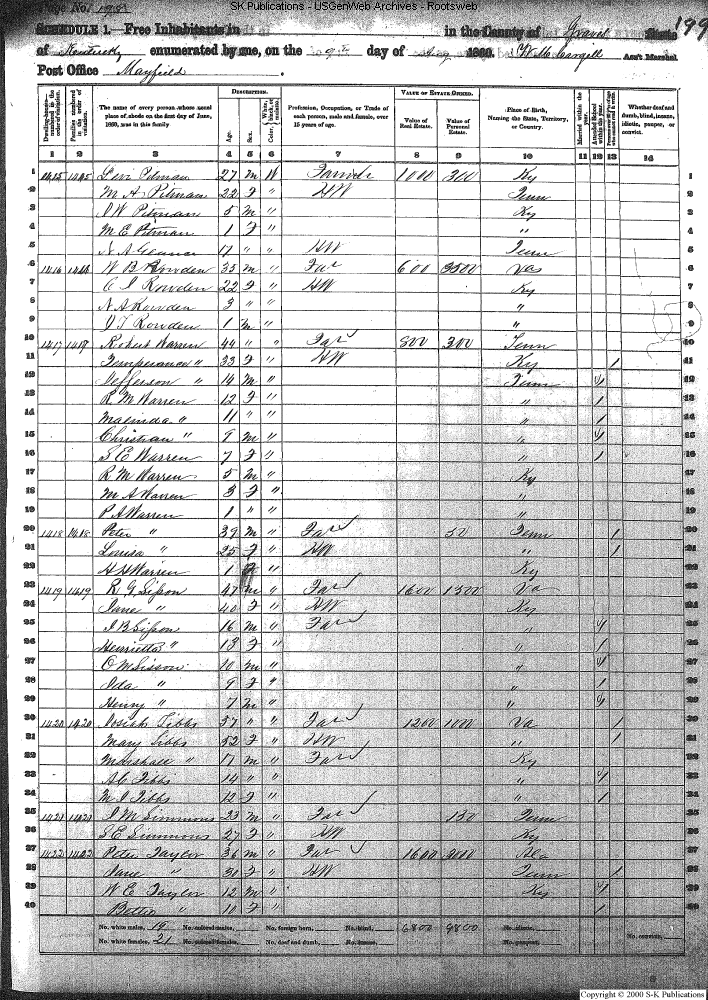 SK Publications - USGenWeb Archives - Rootsweb
Page No.
199
SCHEDULE 1.—Free Inhabitants in in the County of Graves State
of Kentucky enumerated by me, on the 9th day of Aug 1860. Ass't Marshal.
Post Office Mayfield.
DESCRIPTION. VALUE OF ESTATE OWNED.
Dwelling-houses— numbered in the order of visitation. Families numbered in the order of visitation. The name of every person whose usual place of abode on the first day of June, 1860, was in this family. Age. Sex. Color. Profession, Occupation, or Trade of each person, male and female, over 15 years of age. Value of Real Estate. Value of Personal Estate. Place of Birth, Naming the State, Territory, or Country. Married within the year. Attended School within the year. Whether deaf and dumb, blind, insane, idiotic, pauper, or convict.
1 2 3 4 5 6 7 8 9 10 11 12 13 14
1 1415 1415 Levi Pitman 27 m W Farmer 1000 300 Ky 1
2 M A Pitman 22 F " HW Tenn 2
3 J W Pitman 5 m " Ky 3
4 M E Pitman 1 F " " 4
5 17 " " HW Tenn 5
6 1416 1416 W B Rowden 33 m " Far 600 3500 Vas 6
7 C J Rowden 22 F " HW Ky 7
8 N A Rowden 3 " " " 8
9 J T Rowden 1 m " " 9
10 1417 1417 Robert Warren 44 " " Far 800 300 Tenn 10
11 Temperance " 33 F " HW Ky 1 11
12 Jefferson " 14 m " Tenn 1 12
13 R M Warren 12 F " " 1 13
14 Malinda " 11 " " " 1 14
15 Christian " 9 m " " 1 15
16 S E Warren 7 F " " 1 16
17 R M Warren 5 m " Ky 17
18 M A Warren 3 F " " 18
19 P A Warren 1 " " " 19
20 1418 1418 Peter " 39 m " Far 50 Tenn 1 20
21 Louisa " 25 F " HW " 1 21
22 H H Warren 1 " Ky 22
23 1419 1419 R G Sisson 47 m " Far 1600 1500 Va 23
24 Jane " 40 F " HW Ky 24
25 J B Sisson 16 m " Far " 1 25
26 Henrietta " 13 F " " 1 26
27 O M Sisson 10 m " " 1 27
28 Ida " 9 F " " 1 28
29 Henry " 7 m " " 1 29
30 1420 1420 Josiah Tibbs 57 " " Far 1200 1000 Va 1 30
31 Mary Tibbs 52 F " HW " 1 31
32 Marshall " 17 m " Far Ky 32
33 Al Tibbs 14 " " " 1 33
34 M J Tibbs 12 F " " 1 34
35 1421 1421 J M Simmons 23 m " Far 150 Tenn 35
36 S E Simmons 27 F " HW Ky 36
37 1422 1422 Peter Taylor 36 m " Far 1600 2000 Ala 37
38 Jane " 30 F " HW Tenn 1 38
39 W E Taylor 12 m " Ky 1 39
40 Bettie " 10 F " 1 40
No. white males, 19 No. colored males, No. foreign born, No. blind, 6800 9800 No. idiotic, No. convicts,
No. white females, 21 No. colored females, No. deaf and dumb, No. insane, No. paupers,
Copyright © 2000 S-K Publications